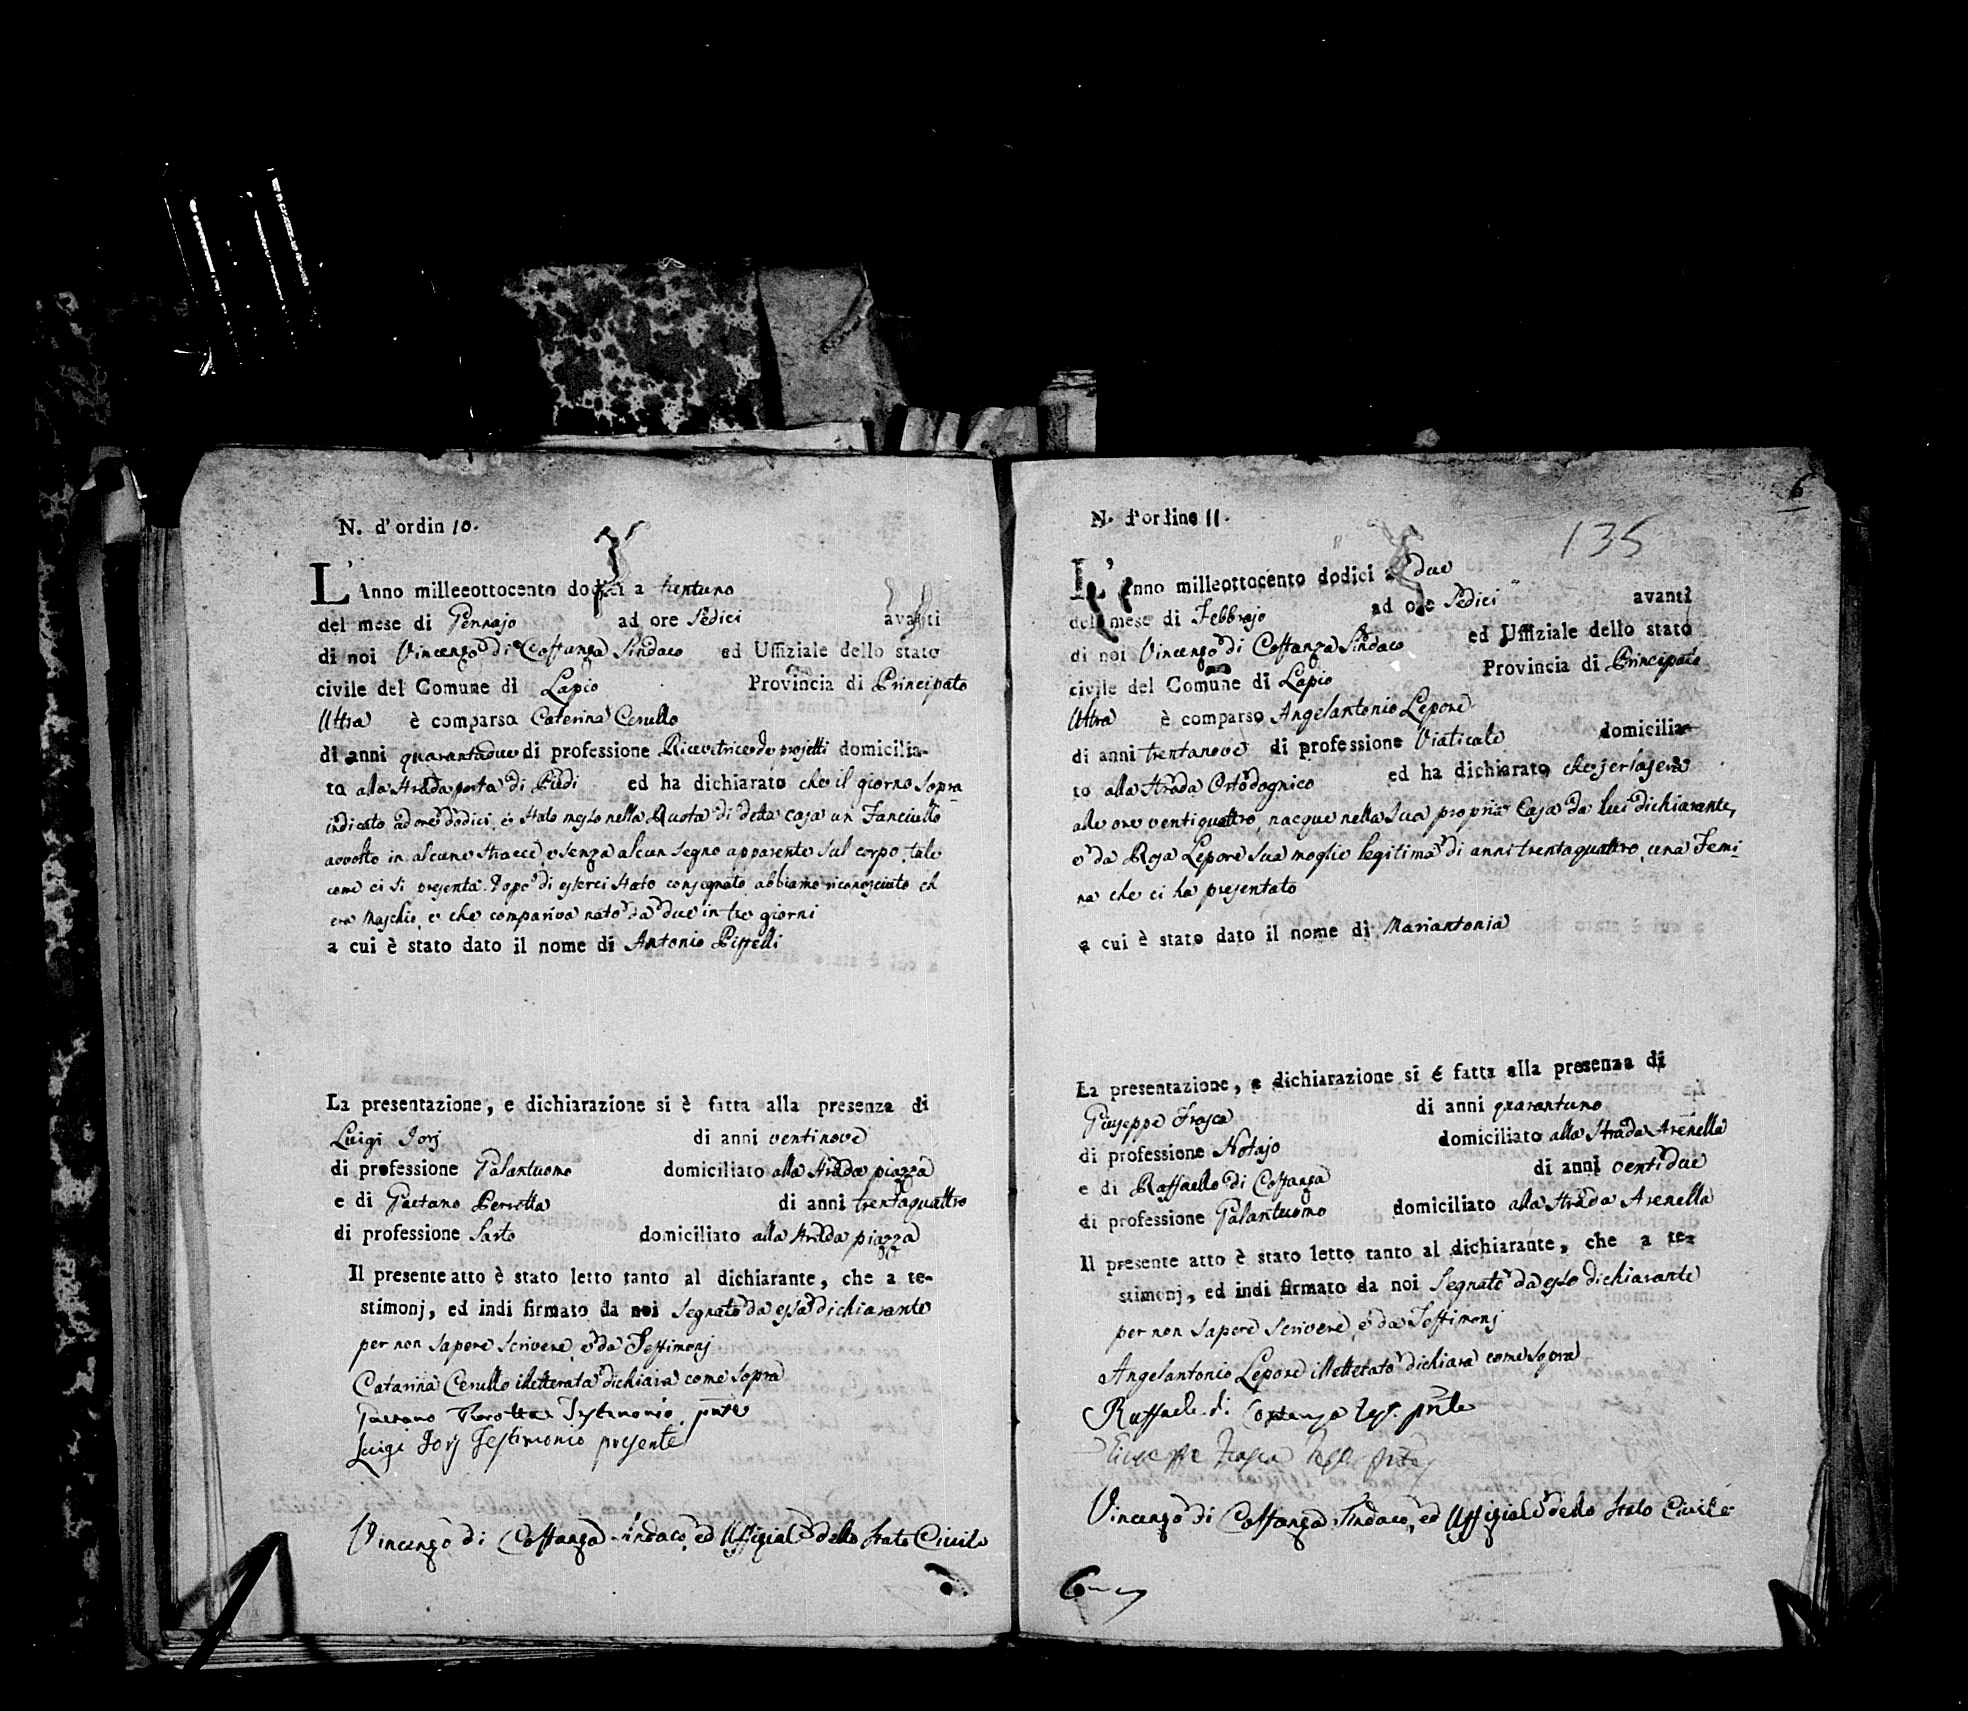 N. d'ordin 10.
L'Anno milleeottocento dodici a trentuno
del mese di Gennajo ad ore Sedici avanti
di noi Vincenzo di Costanza Sindaco ed Uffiziale dello stato
civile del Comune di Lapio Provincia di Principato
Ultra è comparsa Caterina Cerullo
di anni quarantadue di professione Ricevitrice de projetti domicilia-
ta alla Strada porta di Piedi ed ha dichiarato che il giorno Sopra
indicato ad ore dodici è stato messo nella Ruota di detta casa un Fanciullo
avvolto in alcune stracce, e senza alcun segno apparente sul corpo, tale
come ci si presenta. Dopo di esserci stato consegnato abbiamo riconosciuto ch
era Maschio, e che compariva nato da due in tre giorni
a cui è stato dato il nome di Antonio
La presentazione, e dichiarazione si è fatta alla presenza di
Luigi Jorj di anni ventinove
di professione Galantuomo domiciliato alla Strada piazza
e di Gaetano Perrotta di anni trentaquattro
di professione Sarto domiciliato alla Strada piazza
Il presente atto è stato letto tanto al dichiarante, che a te-
stimonj, ed indi firmato da noi Segnato da essa dichiarante
per non sapere scrivere, e da Testimonj
Catarina Cerullo illetterata dichiara come sopra
Gaetano Perotta Testimonio pnte
Luigi Jorj Testimonio presente
Vincenzo di Costanza Sindaco, ed Uffiziale dello Stato Civile
6
135
N. d'ordine 11.
L'Anno milleottocento dodici a due
del mese di Febbrajo ad ore Sedici avanti
di noi Vincenzo di Costanza Sindaco ed Uffiziale dello stato
civile del Comune di Lapio Provincia di Principato
Ultra è comparso Angelantonio Lepore
di anni trentanove di professione Viaticale domicilia-
to alla Strada Ortodognico ed ha dichiarato che jer la sera
alle ore ventiquattro, nacque nella Sua propria Casa da lui dichiarante,
e da Rosa Lepore Sua moglie legitima di anni trentaquattro, una Femi-
na che ci ha presentato
a cui è stato dato il nome di Mariantonia
La presentazione, e dichiarazione si é fatta alla presenza di
Giuseppe Frasca di anni quarantuno
di professione Notajo domiciliato alla Strada Arenella
e di Raffaello di Costanza di anni ventidue
di professione Galantuomo domiciliato alla Strada Arenella
Il presente atto è stato letto tanto al dichiarante, che a te-
stimonj, ed indi firmato da noi Segnato da esso dichiarante
per non sapere scrivere, e da Testimonj
Angelantonio Lepore illetterato dichiara come sopra
Raffaele di Costanza Test. pnte
Giuseppe Frasca
Vincenzo di Costanza Sindaco, ed Uffiziale dello Stato Civile